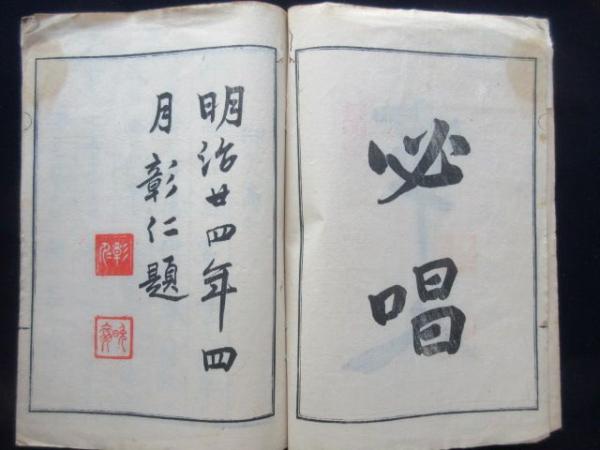 必唱
明治廿四年四
月彰仁題
彰仁